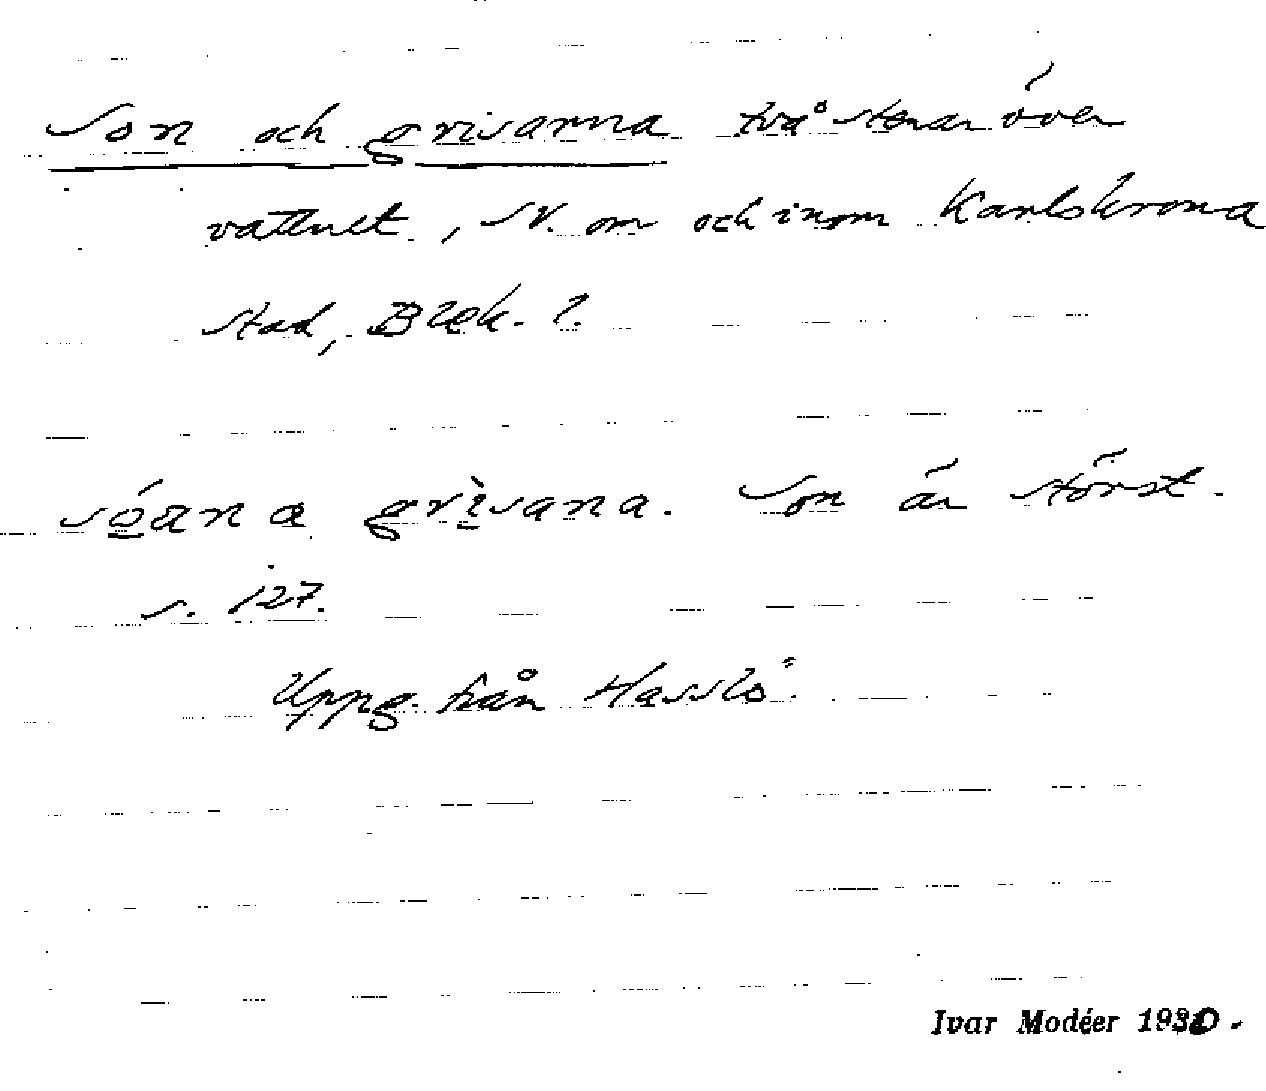 Son och grisarna två stenar över
vattnet, SV. om och inom Karlskrona
stad, Blek. l.
grisana. Son är störst.
s. 127.
Uppg. från Hasslö.
Ivar Modéer 1930.